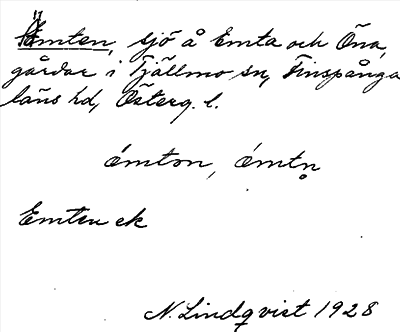 Ämten, sjö å Emta och Öna,
gårdar i Tjällmo sn, Finspånga
läns hd, Österg. l.
émton, émtn̥
Emten ek
N. Lindqvist 1928